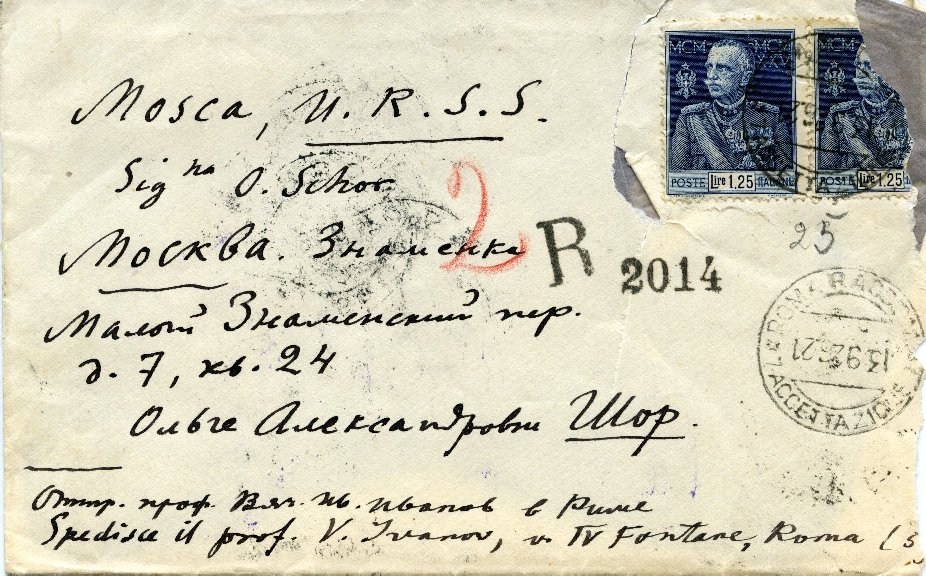 MCM MCM
XXV
POSTE Lire 1.25 ITALIANE
POSTE Lire 1.25
Mosca, U.R.S.S.
Sig na O. Schor
Москва. Знаменка
2
R 2014
25
Малый Знаменский пер.
д. 7, кв. 24
ROMA RACC
13.9.26.21
ACCETTAZIONE
Ольге Александровне Шор.
Отпр. проф. Вяч. Ив. Иванов в Риме
Spedisce il prof. V. Ivanov, v. IV Fontane, Roma (5